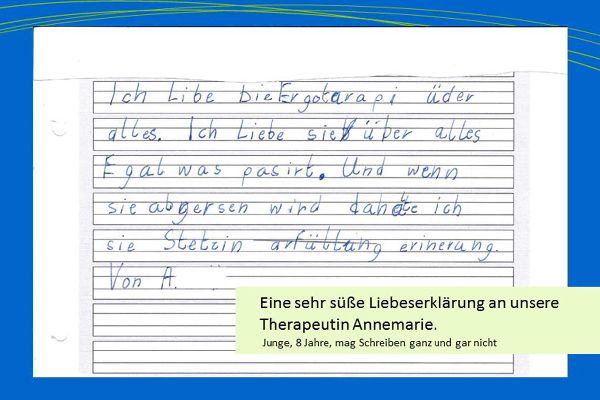 Ich Libe bieErgotarapi üder
alles. Ich Liebe sie über alles
Egal was pasirt. Und wenn
sie abgersen wird dahatte ich
sie Stetzin arfülltung erinerung.
Von A.
Eine sehr süße Liebeserklärung an unsere
Therapeutin Annemarie.
Junge, 8 Jahre, mag Schreiben ganz und gar nicht